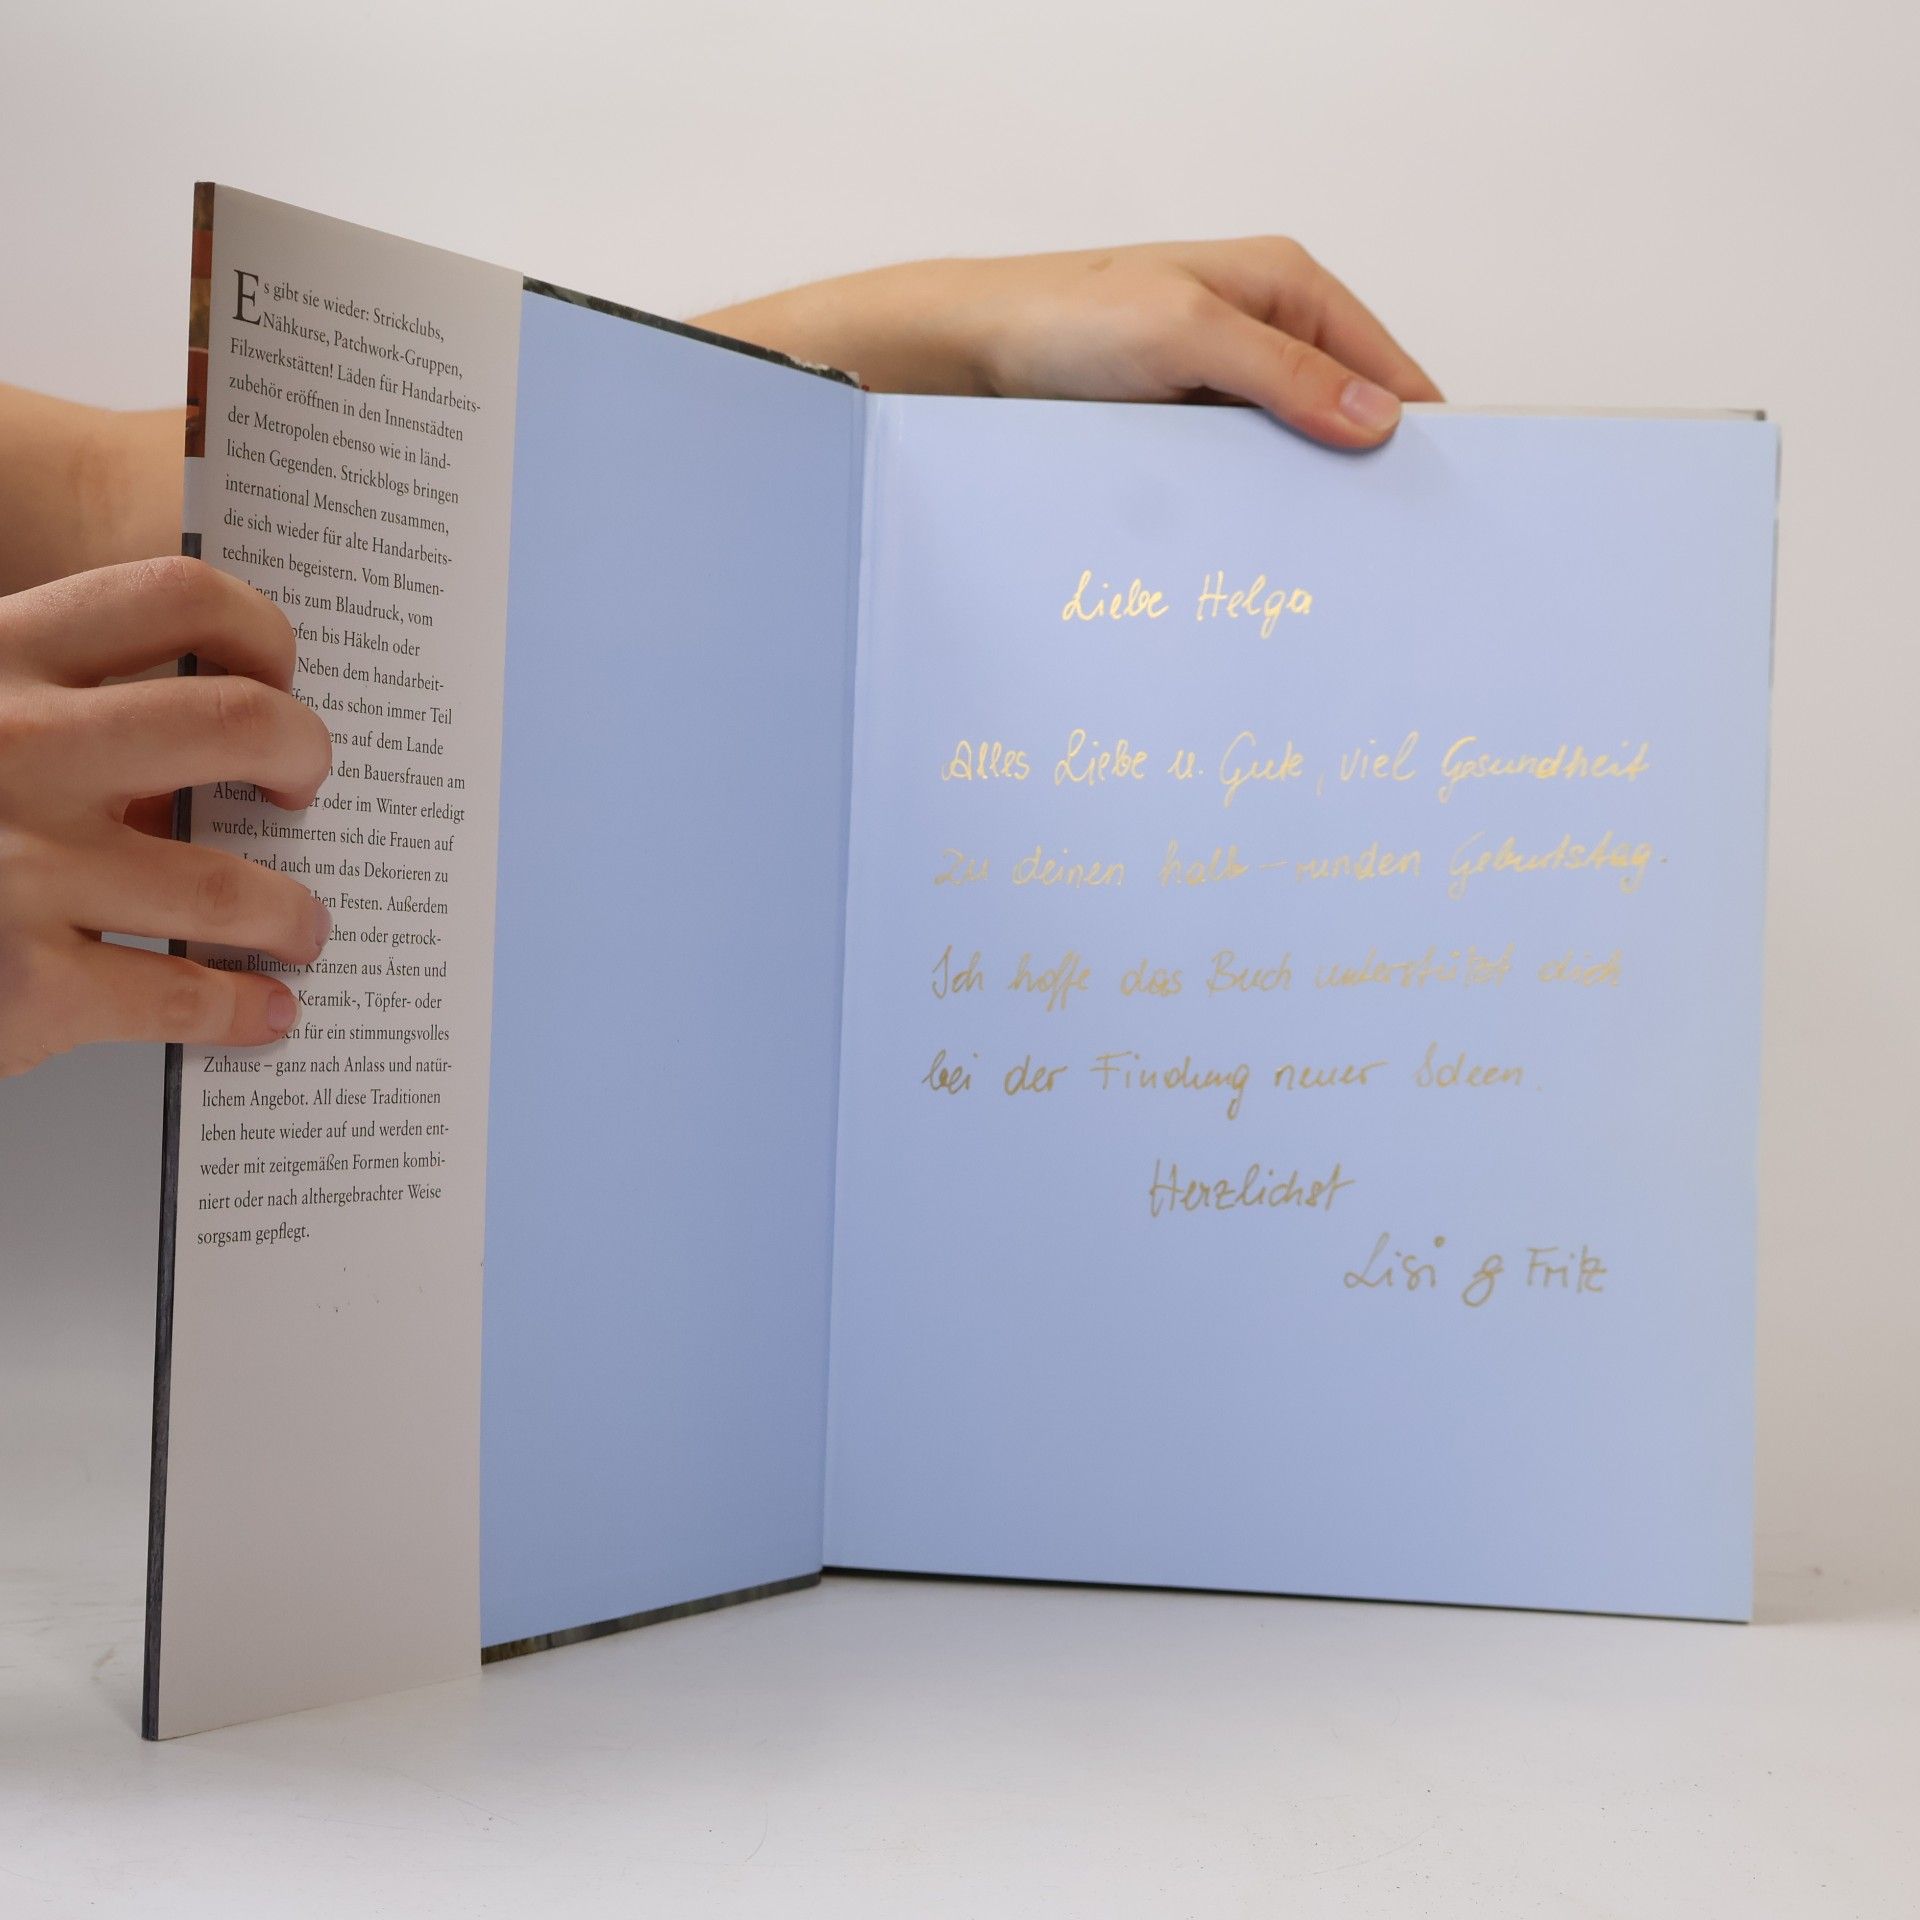 Es gibt sie wieder: Strickclubs,
Nähkurse, Patchwork-Gruppen,
Filzwerkstätten! Läden für Handarbeits-
zubehör eröffnen in den Innenstädten
der Metropolen ebenso wie in länd-
lichen Gegenden. Strickblogs bringen
international Menschen zusammen,
die sich wieder für alte Handarbeits-
techniken begeistern. Vom Blumen-
bis zum Blaudruck, vom
bis Häkeln oder
Neben dem handarbeit-
das schon immer Teil
auf dem Lande
den Bauersfrauen am
Abend oder im Winter erledigt
wurde, kümmerten sich die Frauen auf
auch um das Dekorieren zu
Festen. Außerdem
oder getrock-
neten Blumen, Kränzen aus Ästen und
Keramik-, Töpfer- oder
für ein stimmungsvolles
Zuhause – ganz nach Anlass und natür-
lichem Angebot. All diese Traditionen
leben heute wieder auf und werden ent-
weder mit zeitgemäßen Formen kombi-
niert oder nach althergebrachter Weise
sorgsam gepflegt.
Liebe Helga
Alles Liebe u. Gute, viel Gesundheit
zu deinen halb-runden Geburtstag.
Ich hoffe das Buch unterstützt dich
bei der Findung neuer Ideen.
Herzlichst
Lisi & Fritz